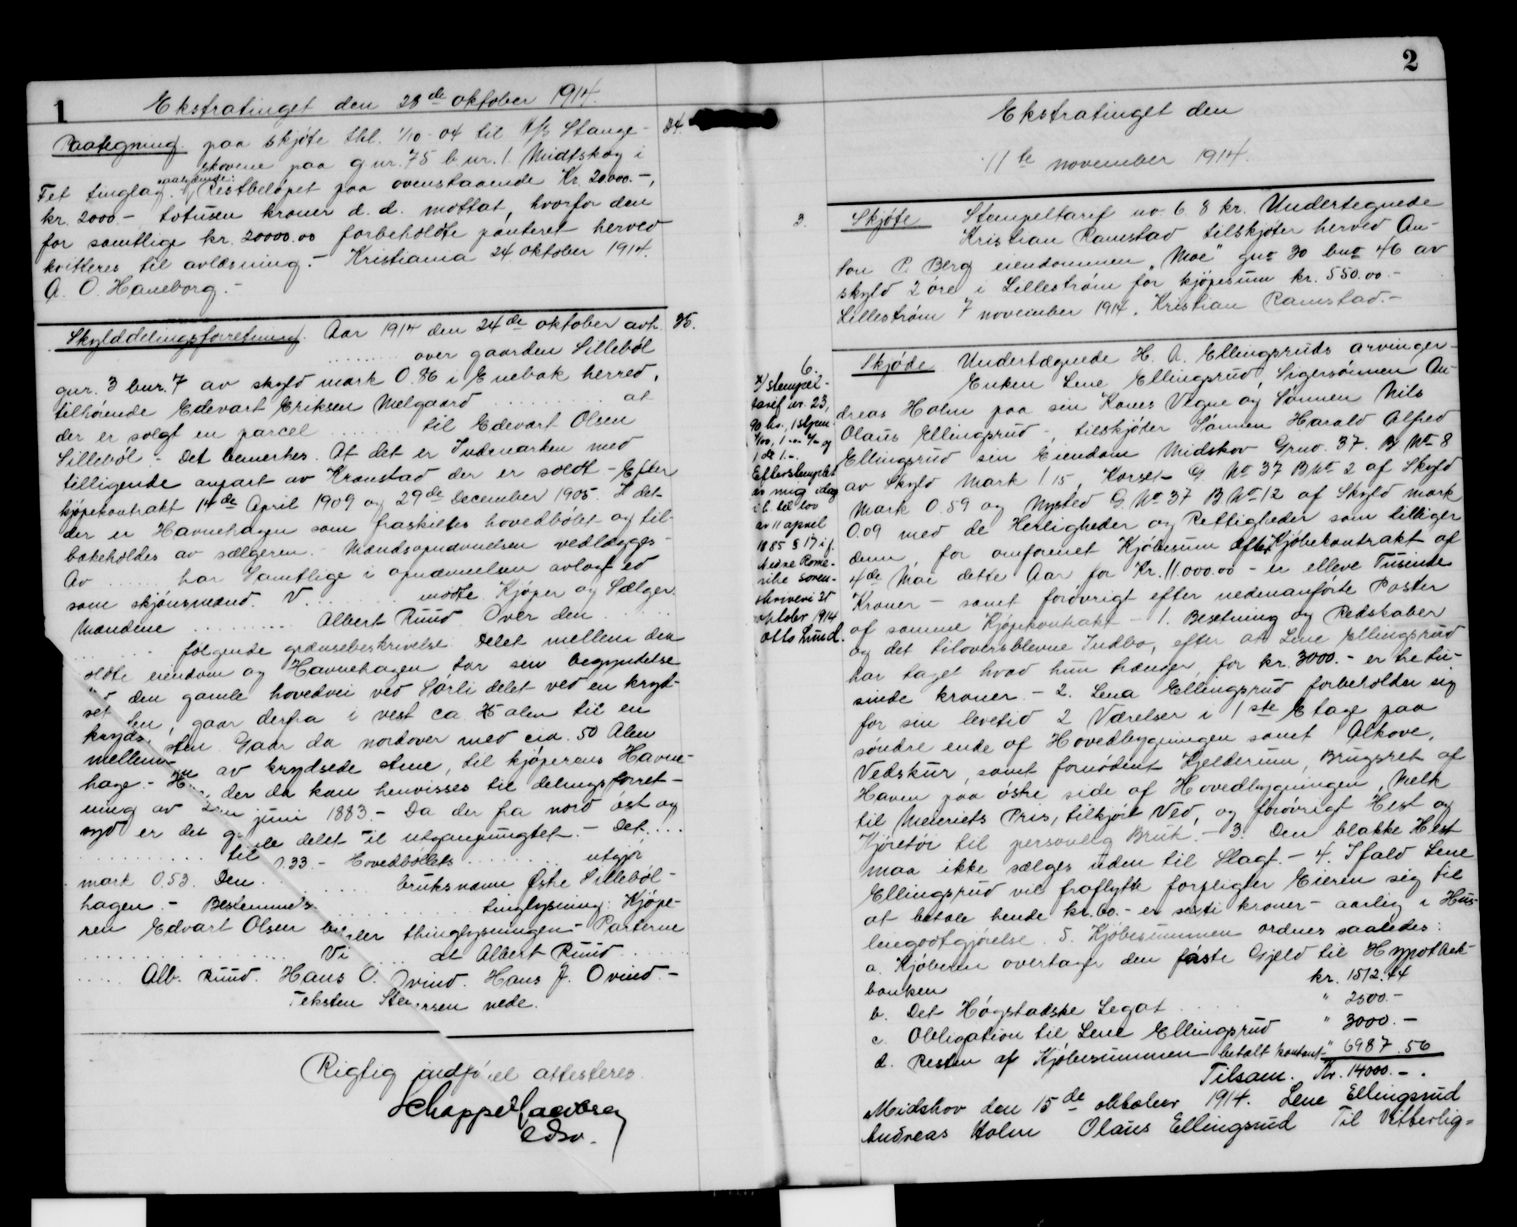 1
Ekstratinget den 28de oktober 1914.
Paategning paa skjøte thl. 1/10-04 til A/S Stange- 24.
skovene paa gnr. 75 bnr. 1 Midtskog i
Fet tinglag Restbeløpet paa ovenstaaende Kr. 20000.-,
kr. 2000.- totusen kroner d.d. mottat, hvorfor den
for samtlige kr. 20000.00 forbeholdte panteret herved
kvitteres til avlæsning.- Kristiania 24 oktober 1914.
A. O. Haneborg.-
Skylddelingsforretning. Aar 1914 den 24de oktober avh. 25.
......... over gaarden Sillebøl
gnr. 3 bnr. 7 av skyld mark 0.86 i Enebak herred,
tilhørende Edevart Eriksen Melgaard ............ at
der er solgt en parcel ......... til Edevart Olsen
Sillebøl.- Det bemerkes. At det er Indemarken med
tilligende avpart av Kranstad der er soldt - Efter
kjøpekontrakt 14de April 1909 og 29de December 1905. H det
der er Havnehagen som fraskilles hovedbølet og til-
bakeholdes av sælgeren.- Mandsopnævnelsen vedlægges-
Av ....... har Samtlige i opnævnelsen avlagt ed
som skjønsmænd. V ......... møtte Kjøper og Sælger
Mændene ........... Albert Ruud Over den .....
...... følgende grændsebeskrivelse. Delet mellem den
soldte eiendom og Havnehagen tar sin begyndelse
den gamle hovedvei ved Sørli delet ved en kryd-
set sten, gaar derfra i vest ca. alen til en
kryds. sten. Gaar da nordover med cia. 50 Alen
mellem av krydsede stene, til kjøperens Havne-
hage.- der da kan henvisses til delingsforret-
ning av juni 1883.- Da der fra nord øst og
syd er det delet til utgangpungtet.- Det ....
.............. til 0.33 - Hovedbøllets ......... utgjør
mark 0.53. Den ......... bruksnavn Østre Sillebøl-
hagen.- Bestemmes ............. tinglysning: Kjøpe-
ren Edvart Olsen thinglysningen.- Parterne
................... Vi ..... at Albert Ruud ......
..... Alb. Ruud. Hans O. Ovind. Hans J. Ovind.-
Teksten
Rigtig indført attesteres.
2
Ekstratinget den
11te november 1914.
3. Skjøte Stempeltarif no. 6 8 kr. Undertegnede
Kristian Ramstad tilskjøter herved An-
ton P. Berg eiendommen "Moe" gno 30 bno 46 av
skyld 2 øre i Lillestrøm for kjøpesum kr. 550.00.-
Lillestrøm 7 november 1914. Kristian Ramstad.-
6.
stempel-
tarif nr. 23,
Efterstemplet
av mig idag
i h. til lov
av 11 april
1885 § 17 i f.
Nedre Rome-
rike soren-
skriveri 21
oktober 1914
Otto Lund.
Skjøde Undertægnede H. A. Ellingsruds arvinger-
Enken Lene Ellingsrud, Svigersønnen An-
dreas Holm paa sin Kones Vegne og Sønnen Nils
Olaus Ellingsrud -, tilskjøter Sønnen Harald Alfred
Ellingsrud sin Eiendom Midskov Gno. 37. B No 8
av Skyld Mark 1.15, Korset G. No 37 B No 2 af Skyld
Mark 0.59 og Nysted G. No 37 B No 12 af Skyld mark
0.09 med de Herligheder og Rettigheder som tilligger
dem, for omforenet Kjøbesum efter Kjøbekontrakt af
4de Mai dette Aar for Kr. 11.000.00 - er elleve Tusinde
Kroner - samt forøvrigt efter nedenanførte Poster
af samme Kjøpekontrakt - 1. Besetning og Redskaber
og det tiloversblevne Indbo, efter at Lene Ellingsrud
har taget hvad hun trænger, for kr. 3000.- er tre tu-
sinde kroner.- 2. Lena Ellingsrud forbeholder sig
for sin levetid 2 Værelser i 1ste Etage paa
søndre ende af Hovedbygningen samt Alkove,
Vedskur, samt fornødent Kjelderum, Brugsret af
Haven paa østre side af Hovedbygningen, Melk
til Meieriets Pris, tilkjørt Ved, og forøvrigt Hest og
Kjøretøi til personlig Bruk.- 3. Den blakke Hest
maa ikke sælges uden til Slagt.- 4. Ifald Lene
Ellingsrud vil fraflytte forpligter Eieren sig til
at betale hende kr. 60.- er seksti kroner - aarlig i Hus-
leiegodtgjørelse. 5. Kjøbesummen ordnes saaledes:
a. Kjøberen overtager den faste Gjeld til Hypothek-
banken kr. 1512.44
b. Det Høgstadske Legat " 2500.-
c. Obligation til Lene Ellingsrud " 3000.-
d. Resten af Kjøbesummen betalt kontant " 6987.56
Tilsam. Kr. 14000.-.
Midskov den 15de oktober 1914. Lene Ellingsrud
Andreas Holm Olaus Ellingsrud Til Vitterlig=